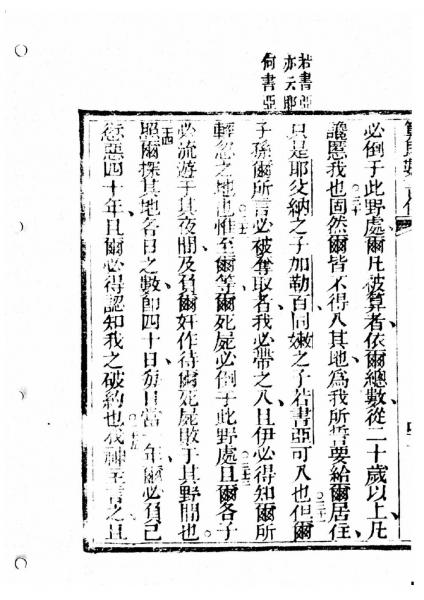 若書亞
亦云耶
何書亞
必倒于此野處爾凡被算者依爾總數從二十歲以上凡
讒慝我也固然爾皆不得入其地為我所誓要給爾居住
只是耶孜納之子加勒百同嫩之子若書亞可入也但爾
子孫爾所言必被奪取者我必帶之入且伊必得知爾所
輕忽之地也惟至爾等爾死屍必倒于此野處且爾各子
必流遊于其野間及負爾奸作待爾死屍敗于其野間也
照爾探其地各日之數即四十日每日當一年爾必負己
愆惡四十年且爾必得認知我之破約也我神主言之且